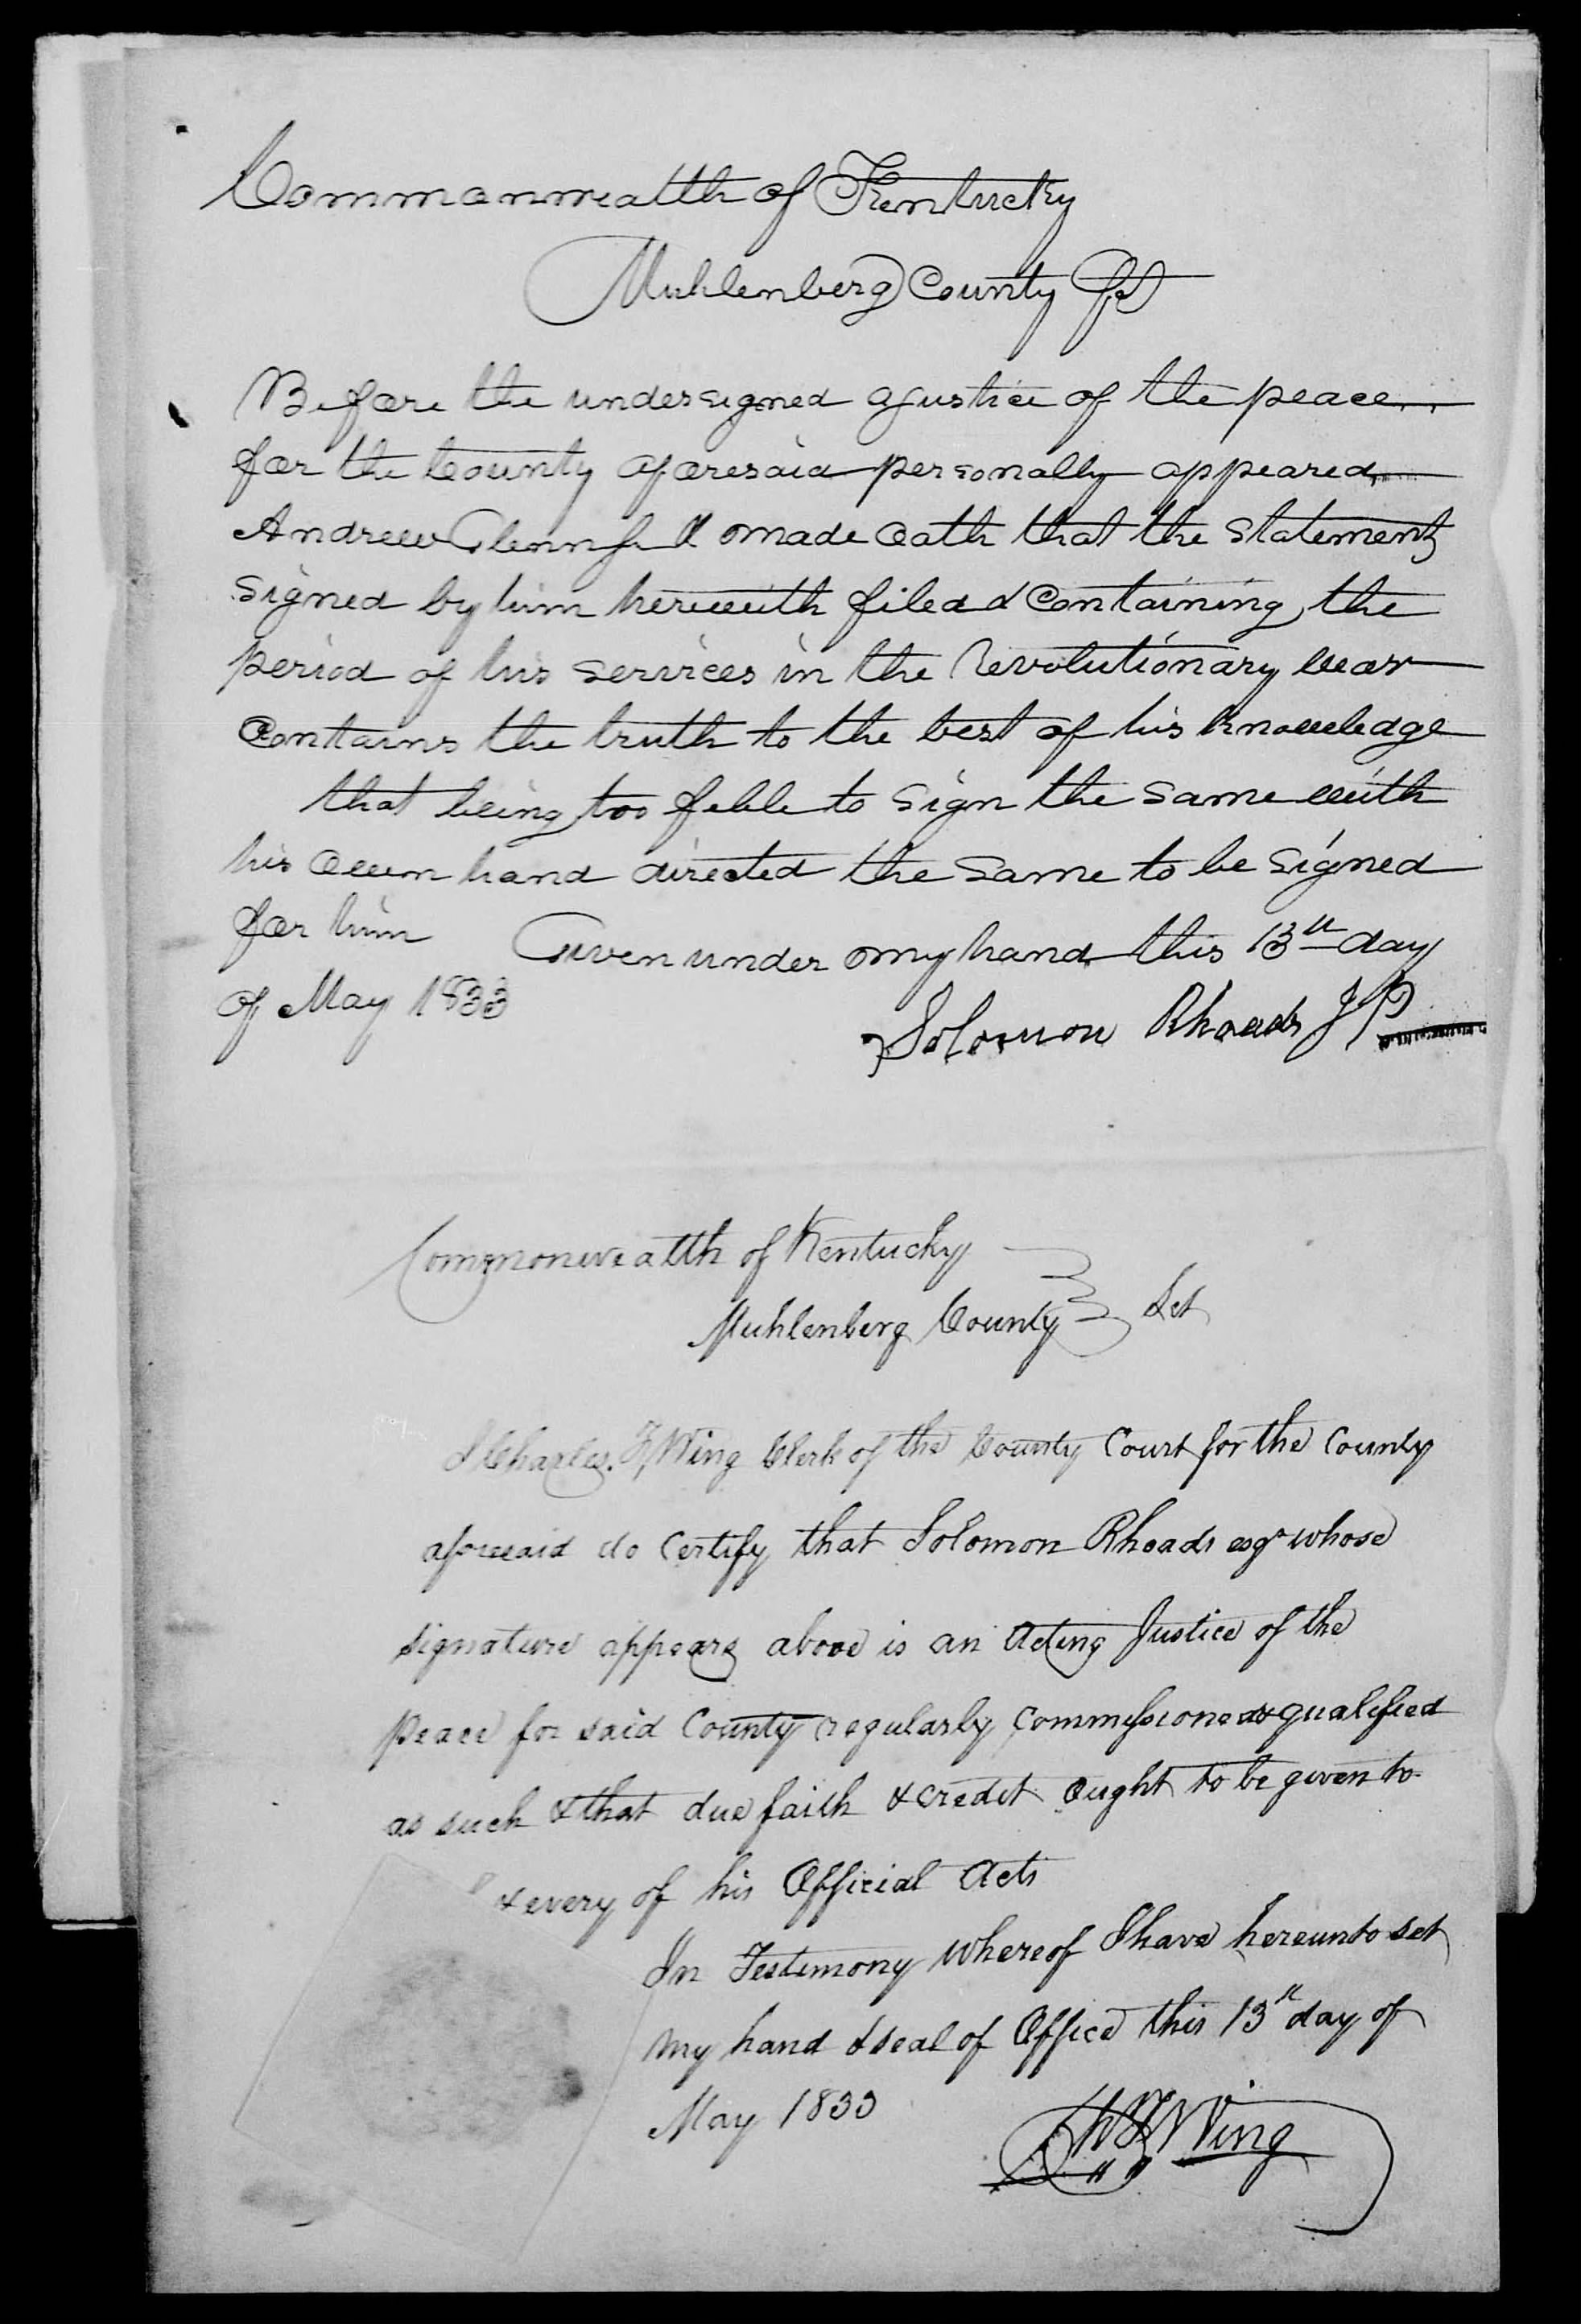 Commonwealth of Kentucky
Muhlenberg County Sct
Before the undersigned a Justice of the peace
for the County aforesaid personally appeared
Andrew Glenn & made oath that the statement
signed by him herewith filed & Containing the
period of his services in the Revolutionary war
Contains the truth to the best of his knowledge
that being too feble to sign the same with
his own hand directed the same to be signed
for him Given under my hand this 13th day
of May 1833
Solomon Rhoads J P
Commonwealth of Kentucky
Muhlenberg County Sct
I Charles F Wing Clerk of the County Court for the County
aforesaid do Certify that Solomon Rhoads esqr whose
signature appears above is an Acting Justice of the
peace for said County regularly commissioned & qualified
as such & that due faith & credit ought to be given to
& every of his Official Acts
In Testimony whereof I have hereunto set
my hand & seal of Office this 13th day of
May 1833
Ch F Wing